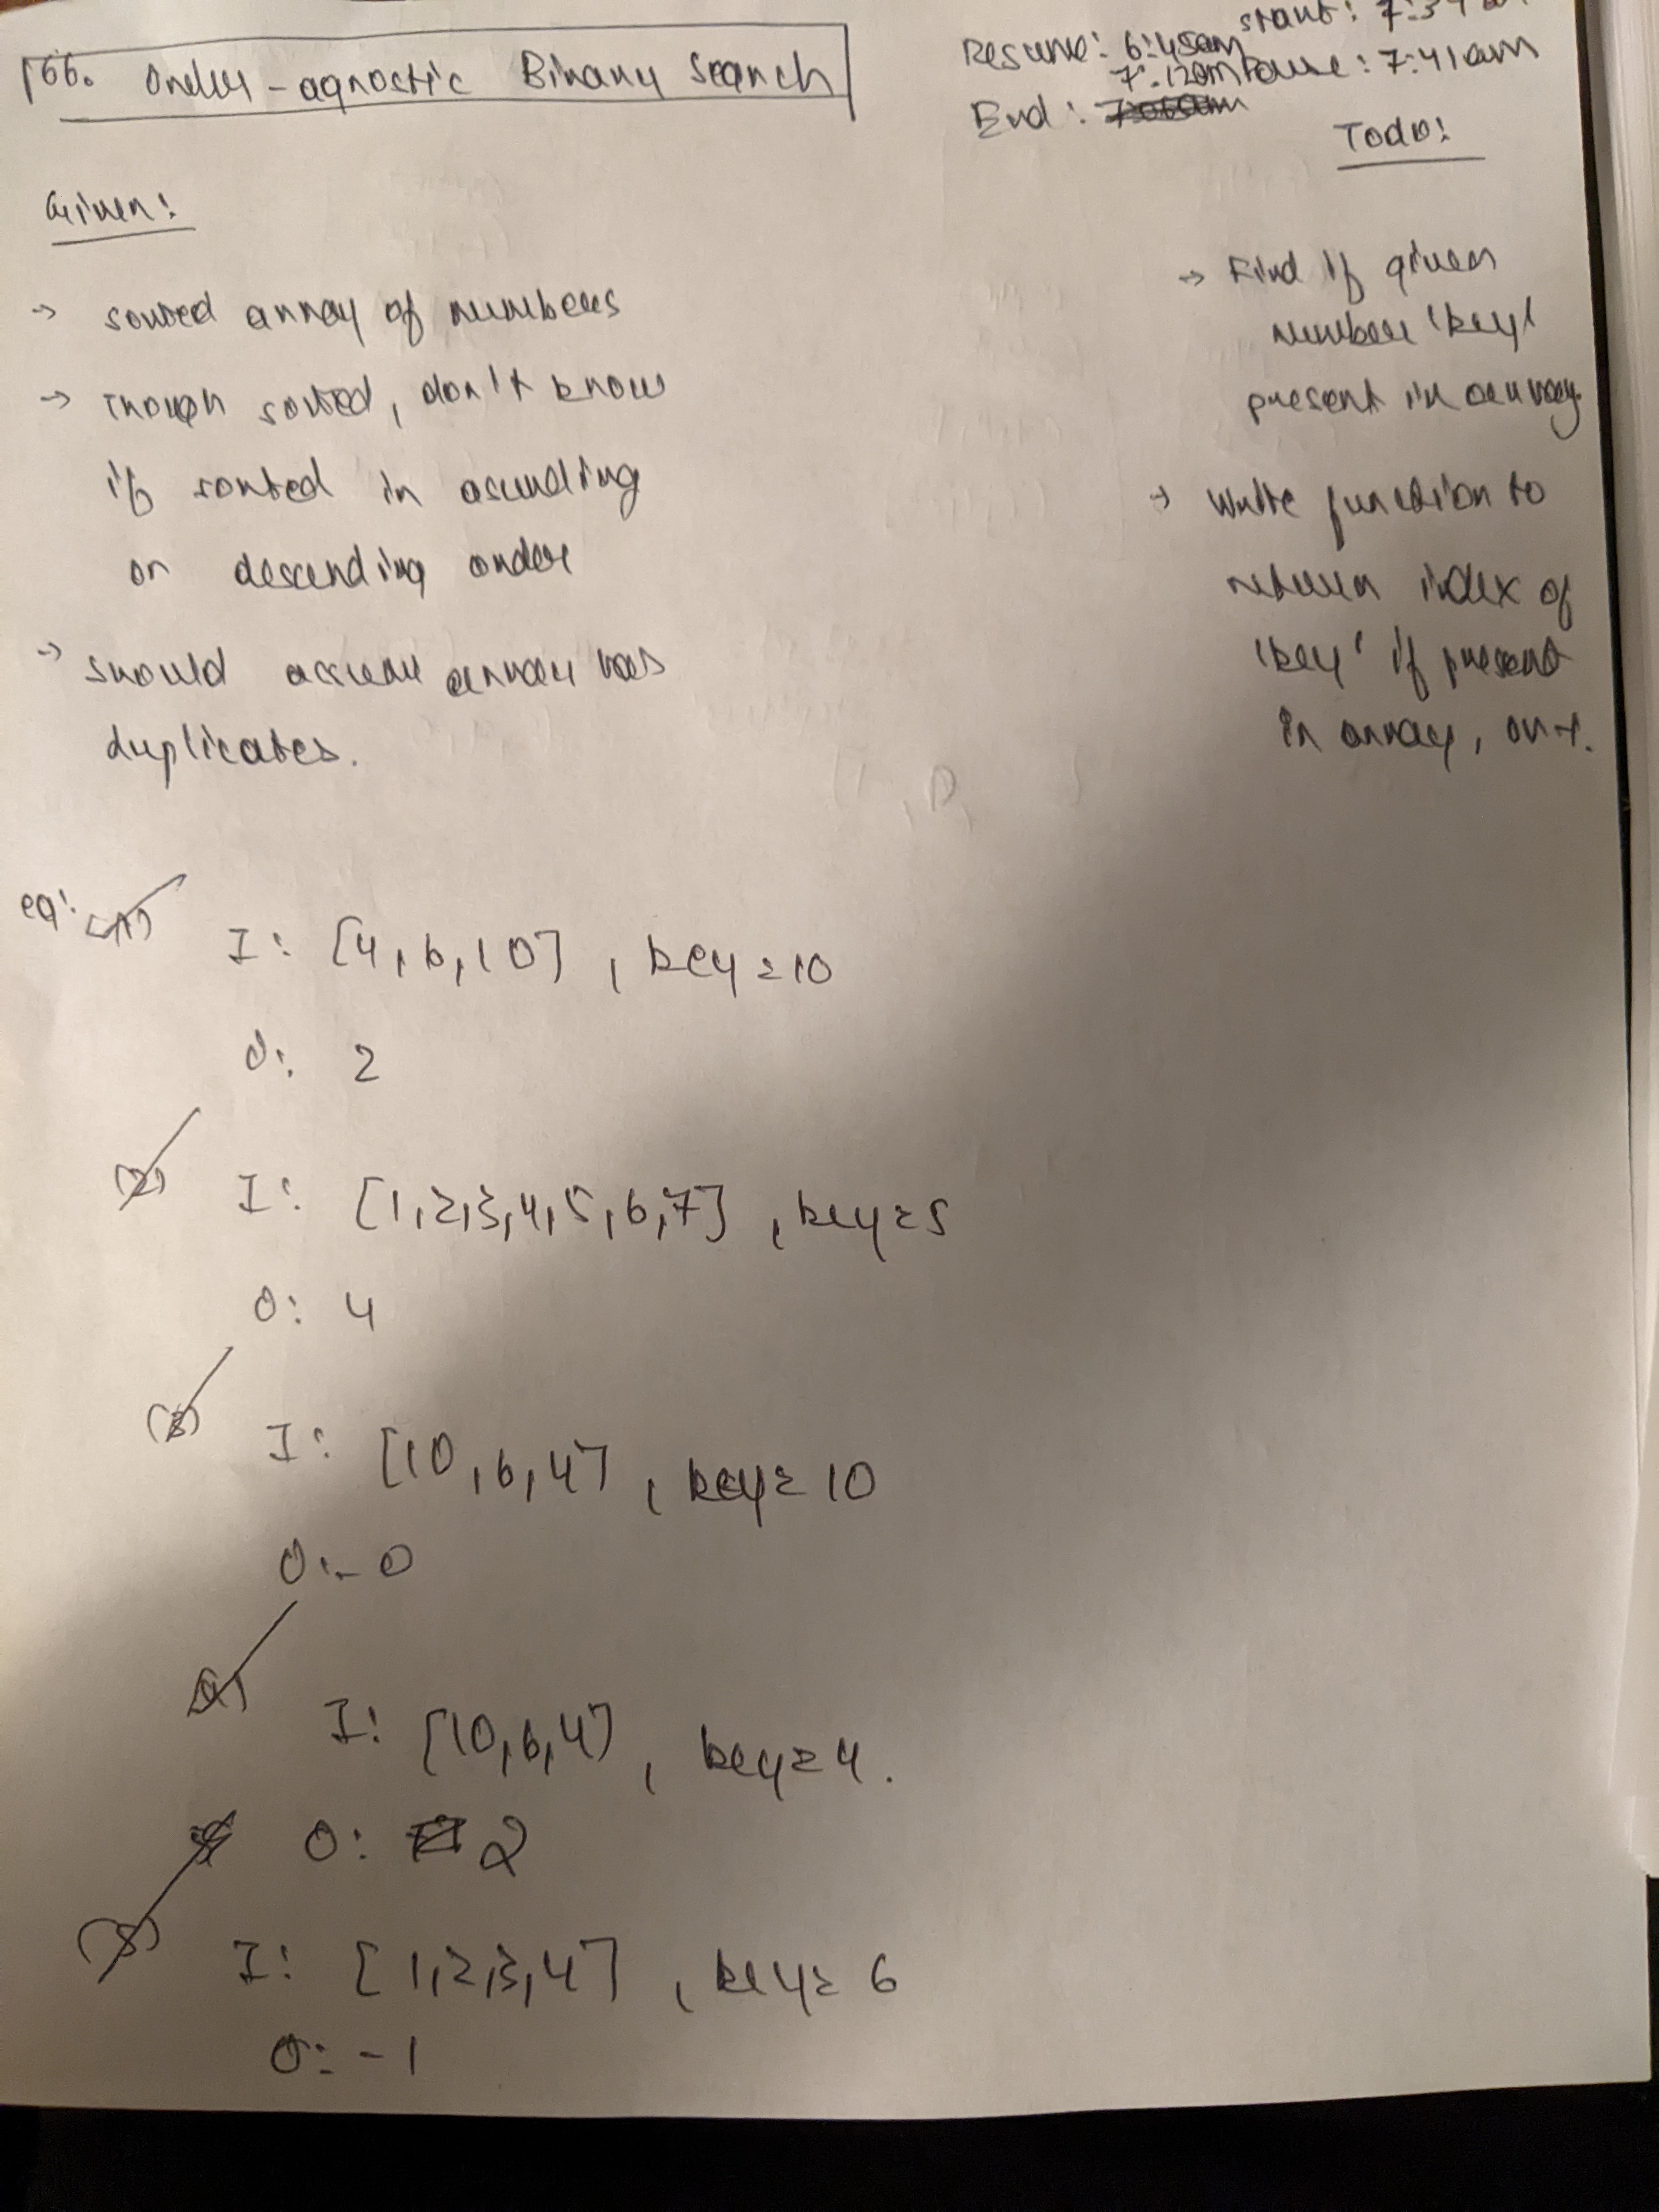 166. Order-agnostic Binary Search
Start: 7:3
Resume: 6:45am
7:12am Pause: 7:41am
End:
Todo:
Given:
→ sorted array of numbers
→ Though sorted, don't know
if sorted in ascending
or descending order
→ should assume array has
duplicates.
→ Find if given
number 'key'
present in array.
→ Write function to
return index of
'key' if present
in array, or -1.
eg: (1) I: [4,6,10], key=10
O: 2
(2) I: [1,2,3,4,5,6,7], key=5
O: 4
(3) I: [10,6,4], key=10
O: 0
(4) I: [10,6,4], key=4.
O: 2
(5) I: [1,2,3,4], key=6
O: -1